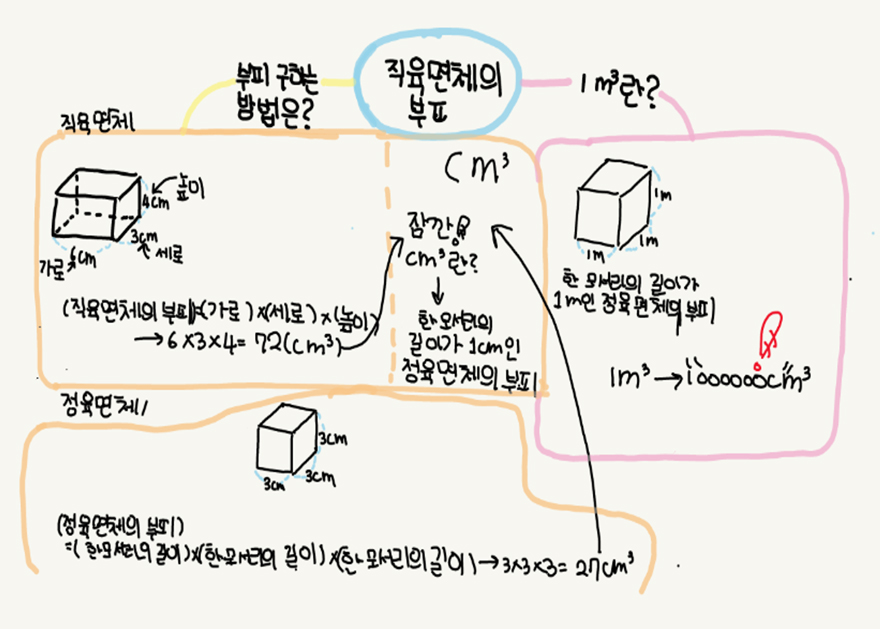 직육면체의
부피
부피 구하는
방법은?
1m³란?
직육면체
4cm
높이
3cm
세로
6cm
가로
(직육면체의 부피)=(가로)×(세로)×(높이)
→6×3×4=72(cm³)
cm³
잠깐!
cm³란?
↓
한 모서리의
길이가 1cm인
정육면체의 부피
1m
1m
1m
한 모서리의 길이가
1m인 정육면체의 부피
1m³→1000000cm³
정육면체
3cm
3cm
3cm
(정육면체의 부피)
=(한모서리의 길이)×(한모서리의 길이)×(한모서리의 길이)→3×3×3=27cm³